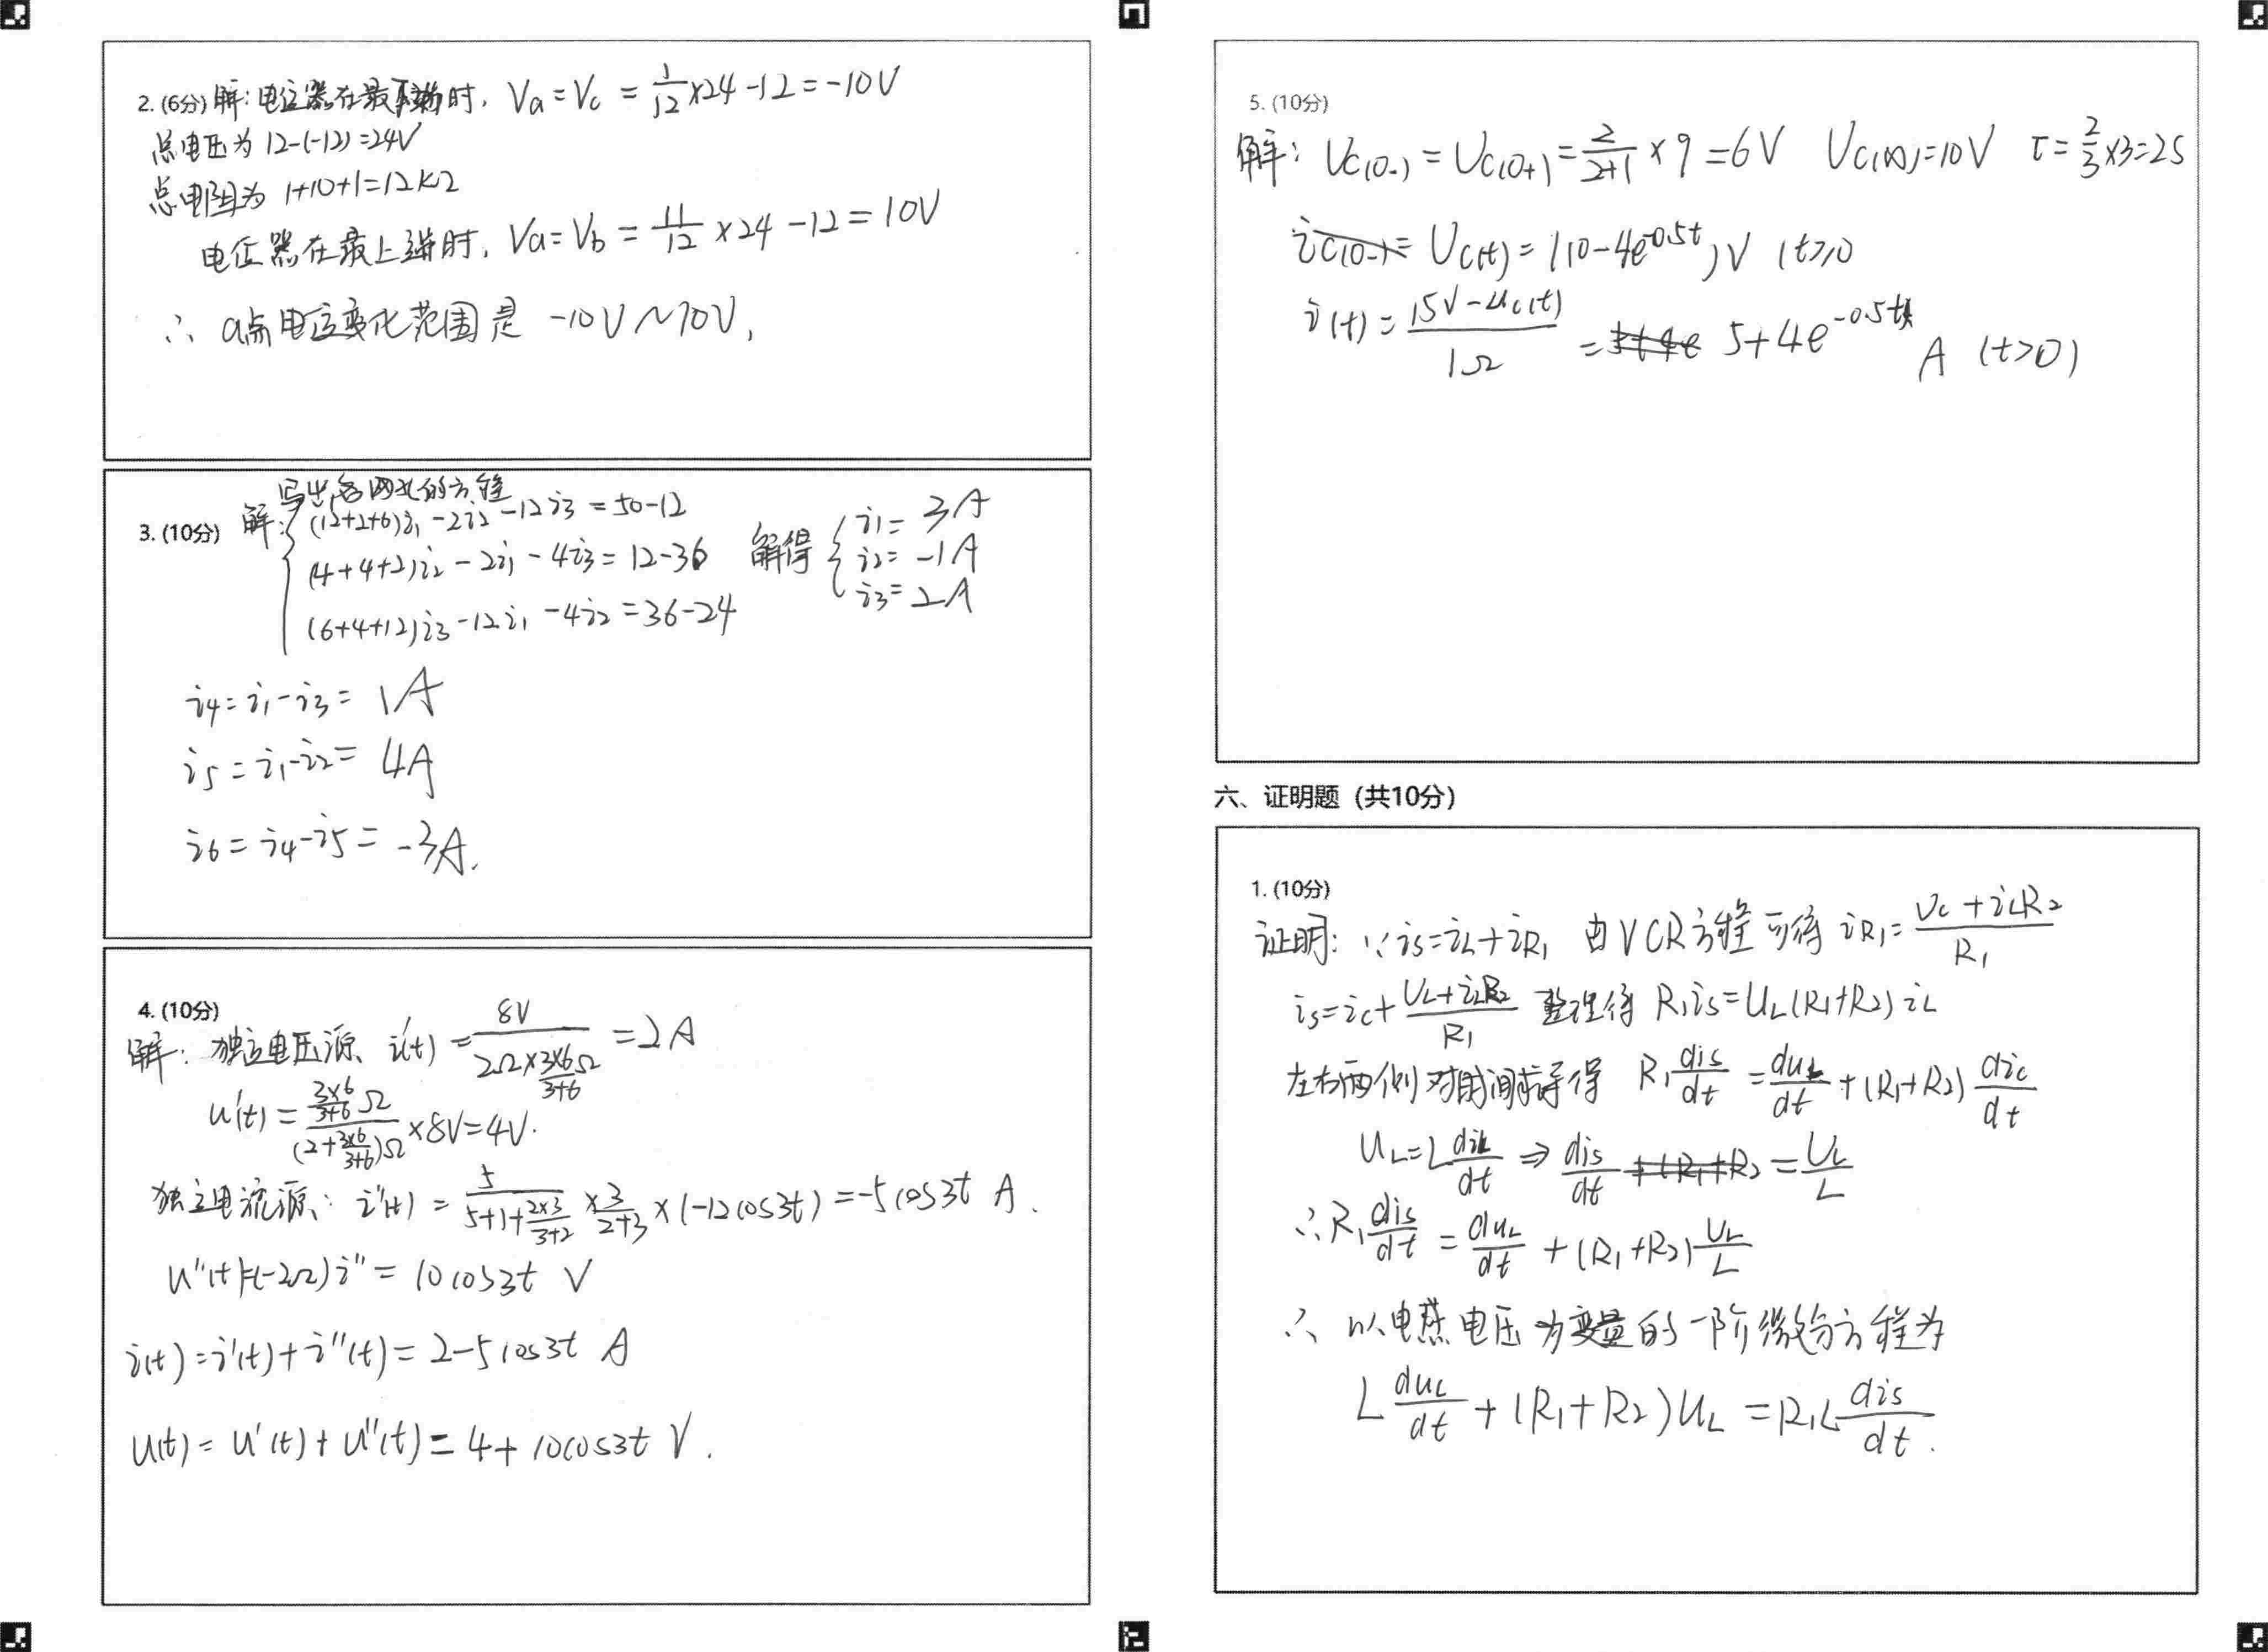 2. (6分) 解: 电位器在最下端时, Va = Vc = 1/12 ×24 -12 = -10V
总电压为 12-(-12)=24V
总电阻为 1+10+1=12kΩ
电位器在最上端时, Va = Vb = 11/12 ×24 -12 = 10V
∴ a点电位变化范围是 -10V ~ 10V,
3. (10分) 解: 写出各网孔的方程
(12+2+6)i1 -2i2 -12i3 = 50-12
(4+4+2)i2 - 2i1 - 4i3 = 12-36
(6+4+12)i3 -12i1 -4i2 = 36-24
解得 i1= 3A
i2= -1A
i3= 2A
i4 = i1 - i3 = 1A
i5 = i1 - i2 = 4A
i6 = i4 - i5 = -3A.
4. (10分)
解: 独立电压源、 i'(t) = 8V/(2Ω×(3×6/(3+6))Ω) = 2A
u'(t) = ((3×6/(3+6))Ω)/((2+3×6/(3+6))Ω) ×8V=4V.
独立电流源: i''(t) = 5/(5+1+(2×3)/(3+2)) × 3/(2+3) × (-12cos3t) = -5cos3t A.
u''(t)=(-2Ω)i'' = 10cos3t V
i(t) = i'(t) + i''(t) = 2-5cos3t A
u(t) = u'(t) + u''(t) = 4+10cos3t V.
5. (10分)
解: UC(0-) = UC(0+) = 2/(2+1) ×9 =6V UC(∞)=10V τ= 2/3 ×3=2S
UC(t) = (10-4e^-0.5t)V (t≥0
i(t) = (15V-uc(t))/1Ω = 5+4e^-0.5t A (t>0)
六、证明题 (共10分)
1. (10分)
证明: ∵ is=iL+iR1 由VCR方程可得 iR1= (Uc+iLR2)/R1
is=ic+ (UL+iLR2)/R1 整理得 R1is=UL(R1+R2)iL
左右两侧对时间求导得 R1 dis/dt = duL/dt +(R1+R2) dic/dt
UL=L diL/dt ⇒ dis/dt = UL/L
∴R1 dis/dt = duL/dt + (R1+R2) UL/L
∴ 以电感电压为变量的一阶微分方程为
L duL/dt + (R1+R2)UL = R1L dis/dt.